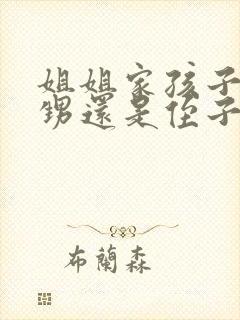 姐姐家孩子
甥還是侄子
布蘭森